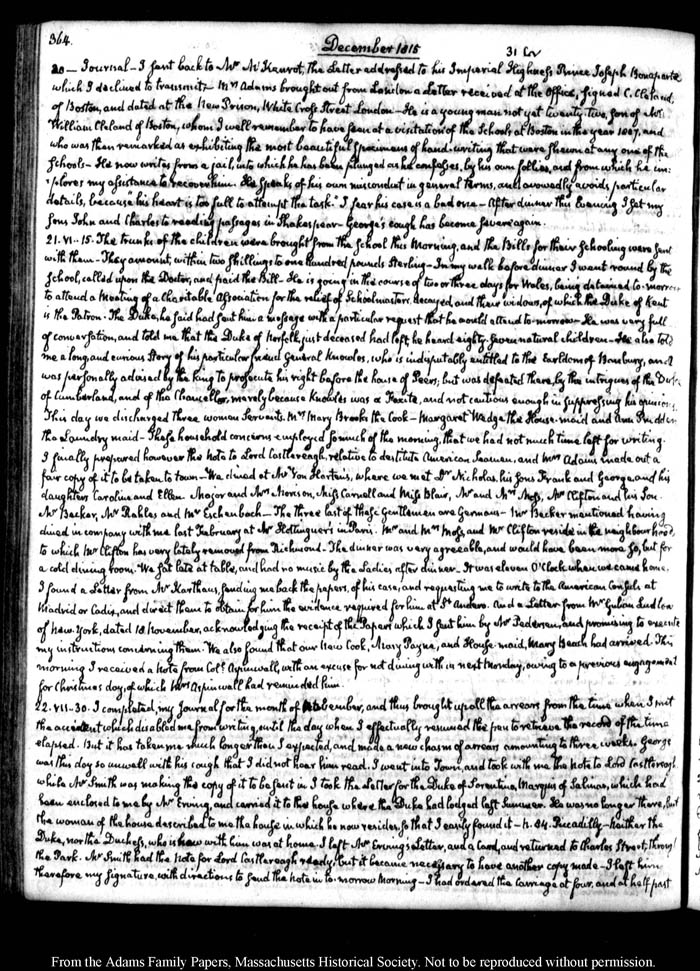 364.
December 1815
31 Cor
20 — Journal — I sent back to Mr. McHenrot, the Letter addressed to his Imperial Highness Prince Joseph Bonaparte
which I declined to transmit — Mrs. Adams brought out from London a Letter received at the office, signed C. Cleland,
of Boston, and dated at the New Prison, White Cross Street London — He is a young man not yet twenty-two, son of Mr.
William Cleland of Boston, whom I well remember to have seen at a visitation of the Schools at Boston in the year 1807, and
who was then remarked as exhibiting the most beautiful specimens of hand-writing that were shewn at any one of the
Schools — He now writes from a jail, into which he has been plunged as he confesses, by his own follies, and from which he im:
:plores my assistance to recover him. He speaks of his own misconduct in general terms, and avowedly avoids particular
details, because his heart is too full to attempt the task. I fear his case is a bad one — After dinner this Evening I set my
sons John and Charles to reading passages in Shakespear — George's cough has become severe again.
21. VI..15. The trunks of the children were brought from the School this Morning, and the Bills for their Schooling were sent
with them — They amount, within two shillings to one hundred pounds Sterling — In my walk before dinner I went round by the
School, called upon the Doctor, and paid the Bill — He is going in the course of two or three days for Wales, being detained to-morrow
to attend a Meeting of a charitable Association for the relief of Schoolmasters, decayed, and their widows, of which the Duke of Kent
is the Patron. The Duke, he said had sent him a message with a particular request that he would attend to-morrow — He was very full
of conversation, and told me that the Duke of Norfolk, just deceased had left he heard eighty-seven natural children — He also told
me a long and curious Story of his particular friend General Knowles, who is indisputably entitled to the Earldom of Banbury, and
was personally advised by the King to prosecute his right before the house of Peers; but was defeated there, by the intrigues of the Duke
of Cumberland, and of the Chancellor, merely because Knowles was a Foxite, and not cautious enough in suppressing his opinions.
This day we discharged three woman Servants. Mrs. Mary Brooks the Cook — Margaret Wedge the House-maid and Ann
the Laundry maid — These household concerns employed so much of the morning, that we had not much time left for writing.
I finally prepared however the Note to Lord Castlereagh, relative to destitute American Seamen, and Mrs. Adams made out a
fair copy of it to be taken to town — We dined at Mr. Von Harten's, where we met Dr. Nicholas, his sons Frank and George, and his
daughters Caroline and Ellen. Major and Mrs. Morison, Miss Carnall and Miss Blair, Mr. and Mrs. Moss, Mr. Clifton and his Son.
Mr. Becker, Mr. Rahles, and Mr. Eichenbach — The three last of these Gentlemen are Germans — Mr. Becker mentioned having
dined in company with me last February at Mr. Hottinguer's in Paris. Mr. and Mrs. Moss, and Mr. Clifton reside in the neighbourhood,
to which Mr. Clifton has very lately removed from Richmond — The dinner was very agreeable, and would have been more so, but for
a cold dining room. We sat late at table, and had no music by the Ladies after dinner. It was eleven O'Clock when we came home.
I found a Letter from Mr. Karthaus, sending me back the papers, of his case, and requesting me to write to the American Consuls at
Madrid or Cadiz, and direct them to obtain for him the evidence required for him at St. Andero. And a Letter from Mr. Gulian Ludlow
of New-York, dated 18 November, acknowledging the receipt of the Papers which I sent him by Mr. Pedersen, and promising to execute
my instructions concerning them. We also found that our new Cook, Mary Payne, and House-maid, Mary Beach had arrived. This
morning I received a Note from Coll. Aspinwall, with an excuse for not dining with us next Monday, owing to a previous engagement
for Christmas day, of which Mrs. Aspinwall had reminded him.
22. VII-30. I completed, my Journal for the month of November, and thus brought up all the arrears from the time when I met
the accident which disabled me from writing, until the day when I effectually resumed the pen to retrieve the record of the time
elapsed. But it has taken me much longer than I expected, and made a new chasm of arrears amounting to three weeks. George
was this day so unwell with his cough that I did not hear him read. I went into Town, and took with me the Note to Lord Castlereagh
while Mr. Smith was making the copy of it to be sent in I took the Letter for the Duke of Sorentina, Marquis of Salinas, which had
been enclosed to me by Mr. Erving, and carried it to the house where the Duke had lodged last Summer. He was no longer there, but
the woman of the house described to me the house in which he now resides, so that I easily found it — N. 84. Piccadilly — Neither the
Duke, nor the Duchess, who is now with him was at home. I left Mr. Erving's Letter, and a card, and returned to Charles Street, through
the Park. Mr. Smith had the Note for Lord Castlereagh ready; but it became necessary to have another copy made — I left him
therefore my signature, with directions to send the note in to-morrow Morning — I had ordered the carriage at four, and at half past
From the Adams Family Papers, Massachusetts Historical Society. Not to be reproduced without permission.